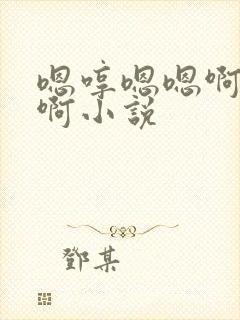 嗯哼嗯嗯啊
啊小説
鄧某